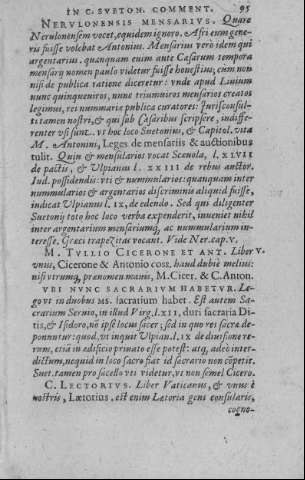 IN C. SVETON. COMMENT. 95
NERVLONENSIS MENSARIVS. Quare
Nerulonensem vocet, equidem ignoro. Afri eum gene-
ris fuisse volebat Antonius. Mensarius verò idem qui
argentarius. quanquam eum ante Cæsarum tempora
mensarij nomen paulo videtur fuisse honestius; cum non
nisi de publica ratione diceretur: vnde apud Liuium
nunc quinqueuiros, nunc triumuiros mensarios creatos
legimus, rei nummariæ publicæ curatores: Iurisconsul-
ti tamen nostri, & qui sub Cæsaribus scripsere, indiffe-
renter vsi sunt. vt hoc loco Suetonius, & Capitol. vita
M. Antonini, Leges de mensariis & auctionibus
tulit. Quin & mensularios vocat Scæuola, l. XLVII
de pactis, & Vlpianus l. XXIIII de rebus auctor.
Iud. possidendis: vti & nummularios: quanquam inter
nummularios & argentarios discriminis aliquid fuisse,
indicat Vlpianus l. IX, de edendo. Sed qui diligenter
Suetonij toto hoc loco verba expenderit, inueniet nihil
inter argentarium mensariumq́, ac nummularium in-
teresse. Græci trapezitas vocant. Vide Ner. cap. V.
M. TVLLIO CICERONE ET ANT. Liber V-
vnus, Cicerone & Antonio coss. haud dubiè melius:
nisi vtrumq, prænomen mauis, M. Cicer. & C. Anton.
VBI NVNC SACRARIVM HABETVR. Le-
go vt in duobus MS. sacrarium habet. Est autem Sa-
crarium Seruio, in illud Virg. l. XII, duri sacraria Di-
tis, & Isidoro, nō ipse locus sacer; sed in quo res sacræ de-
ponuntur: quod, vt inquit Vlpian. l. IX de diuisione re-
rum, etiā in ædificio priuato esse potest: atq, adeò inter-
dictum, nequid in loco sacro fiat id sacrario non cōpetit.
Sunt tamen pro sacello vti videtur, vti non semel Cicero.
C. LECTORIVS. Liber Vaticanus, & vnus è
nostris, Lætorius, est enim Lætoria gens consularis,
cogno-